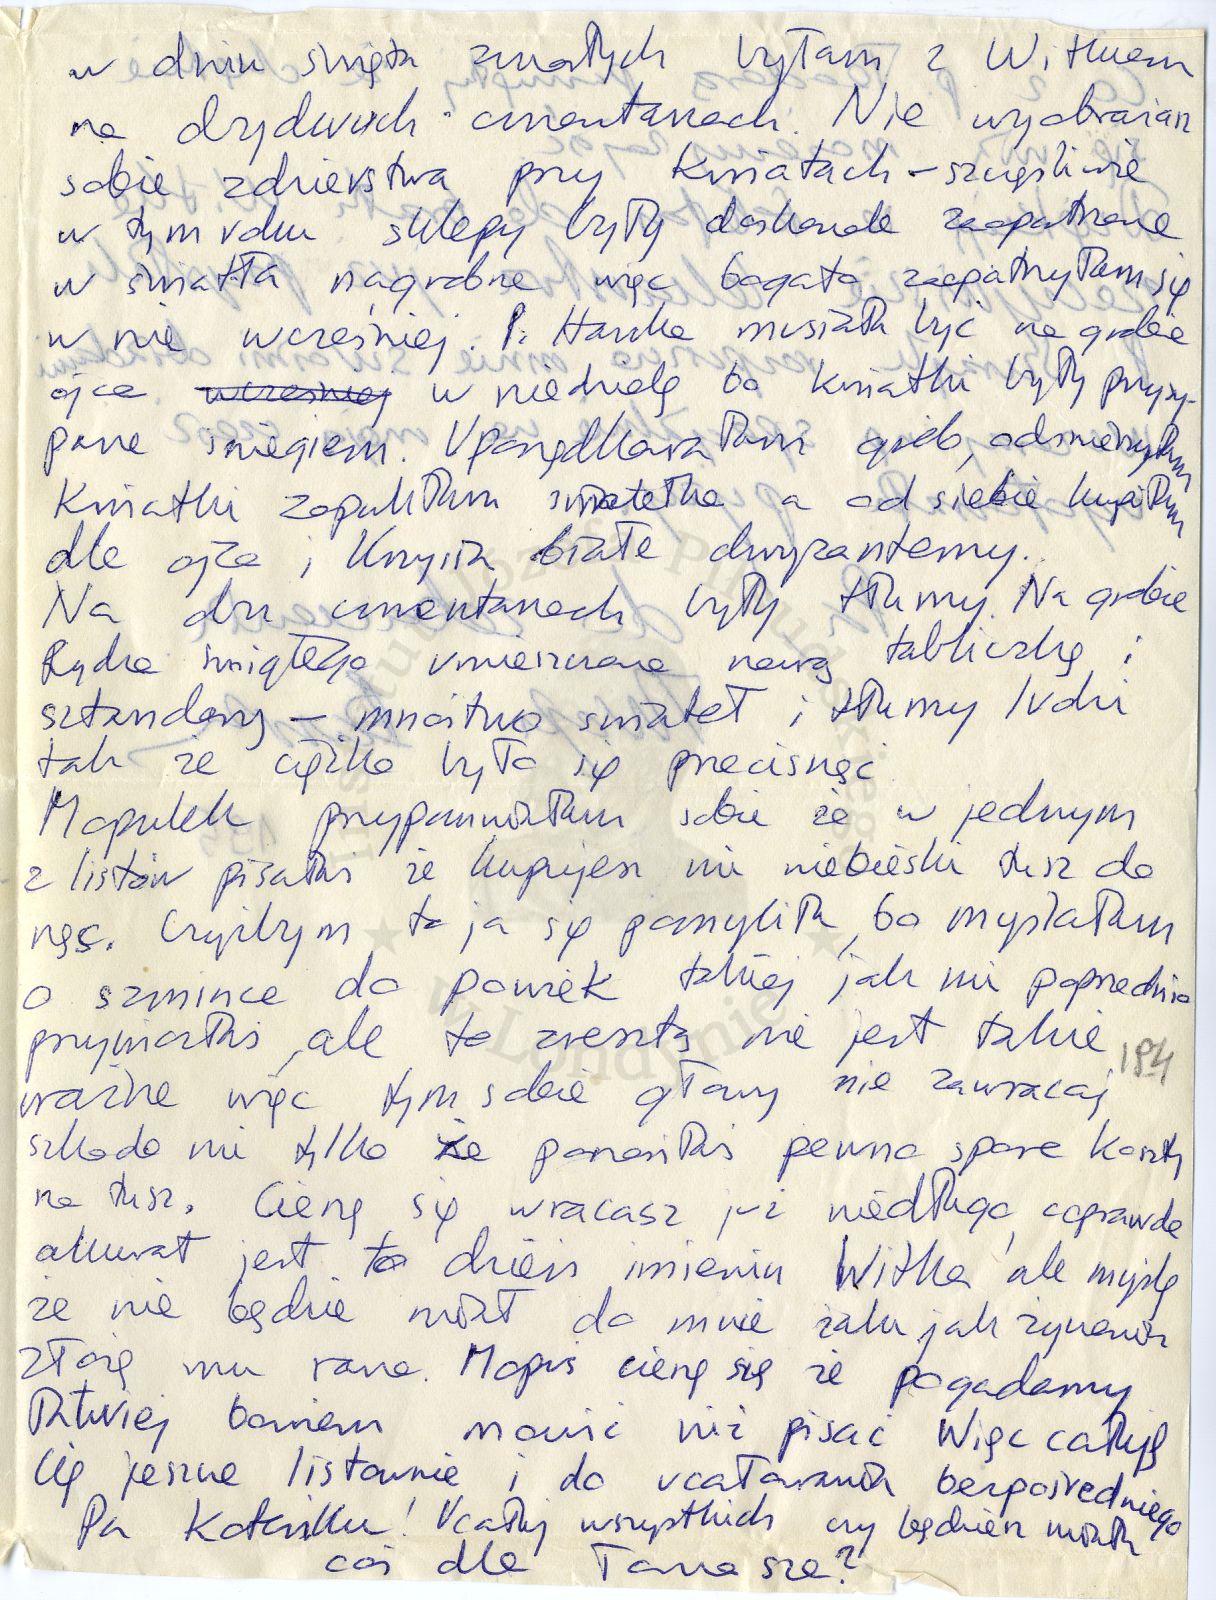 w dniu święta zmarłych byłam z Witkiem
na obydwuch cmentarzach. Nie wyobrażasz
sobie zdzierstwa przy kwiatach - szczęśliwie
w tym roku sklepy były doskonale zaopatrzone
w światła nagrobne więc bogato zaopatrzyłam się
w nie wcześniej. P. Hanka musiała być na grobie
ojca wcześniej w niedzielę bo kwiatki były przysy-
pane śniegiem. Uporządkowałam grób, odśnieżyłam
kwiatki zapaliłam światełka a od siebie kupiłam
dla ojca i Krysia białe chryzantemy.
Na obu cmentarzach były tłumy. Na grobie
Rydza Śmigłego umieszczono nową tabliczkę i
sztandary - mnóstwo świateł i tłumy ludzi
tak że ciężko było się przecisnąć
Mopulek przypomniałam sobie że w jednym
z listów pisałaś że kupujesz mi niebieski tusz do
rzęs. Czyżbym to ja się pomyliła, bo myślałam
o szmince do powiek takiej jak mi poprzednio
przywiozłaś, ale to zresztą nie jest takie
ważne więc tym sobie głowy nie zawracaj
szkoda mi tylko że poniosłaś pewno spore koszty
na tusz. Cieszę się wracasz już niedługo, coprawda
akurat jest to dzień imienin Witka, ale myślę
że nie będzie miał do mnie żalu jak życzenia
złożę mu rano. Mopuś cieszę się że pogadamy
łatwiej bowiem mówić niż pisać Więc całuję
Cię jeszcze listownie i do ucałowania bezpośredniego
Pa Koteńku! Ucałuj wszystkich czy będziesz miała
coś dla Tomasza?
184
Instytut Józefa Piłsudskiego
w Londynie